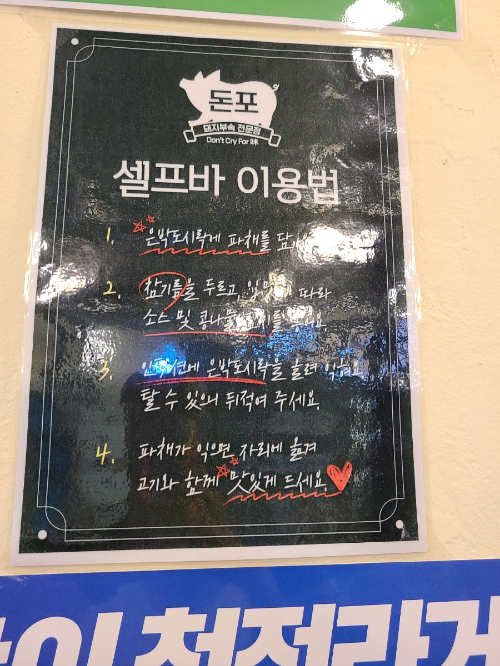 돈포
돼지부속 전문점
Don't Cry For 豚
셀프바 이용법
1. 은박도시락에 파채를
2. 참기름을 두르고, 따라
소스 및
3. 인덕션에 은박도시락을 올려
탈 수 있으니 뒤적여 주세요.
4. 파채가 익으면 자리에 옮겨
고기와 함께 맛있게 드세요